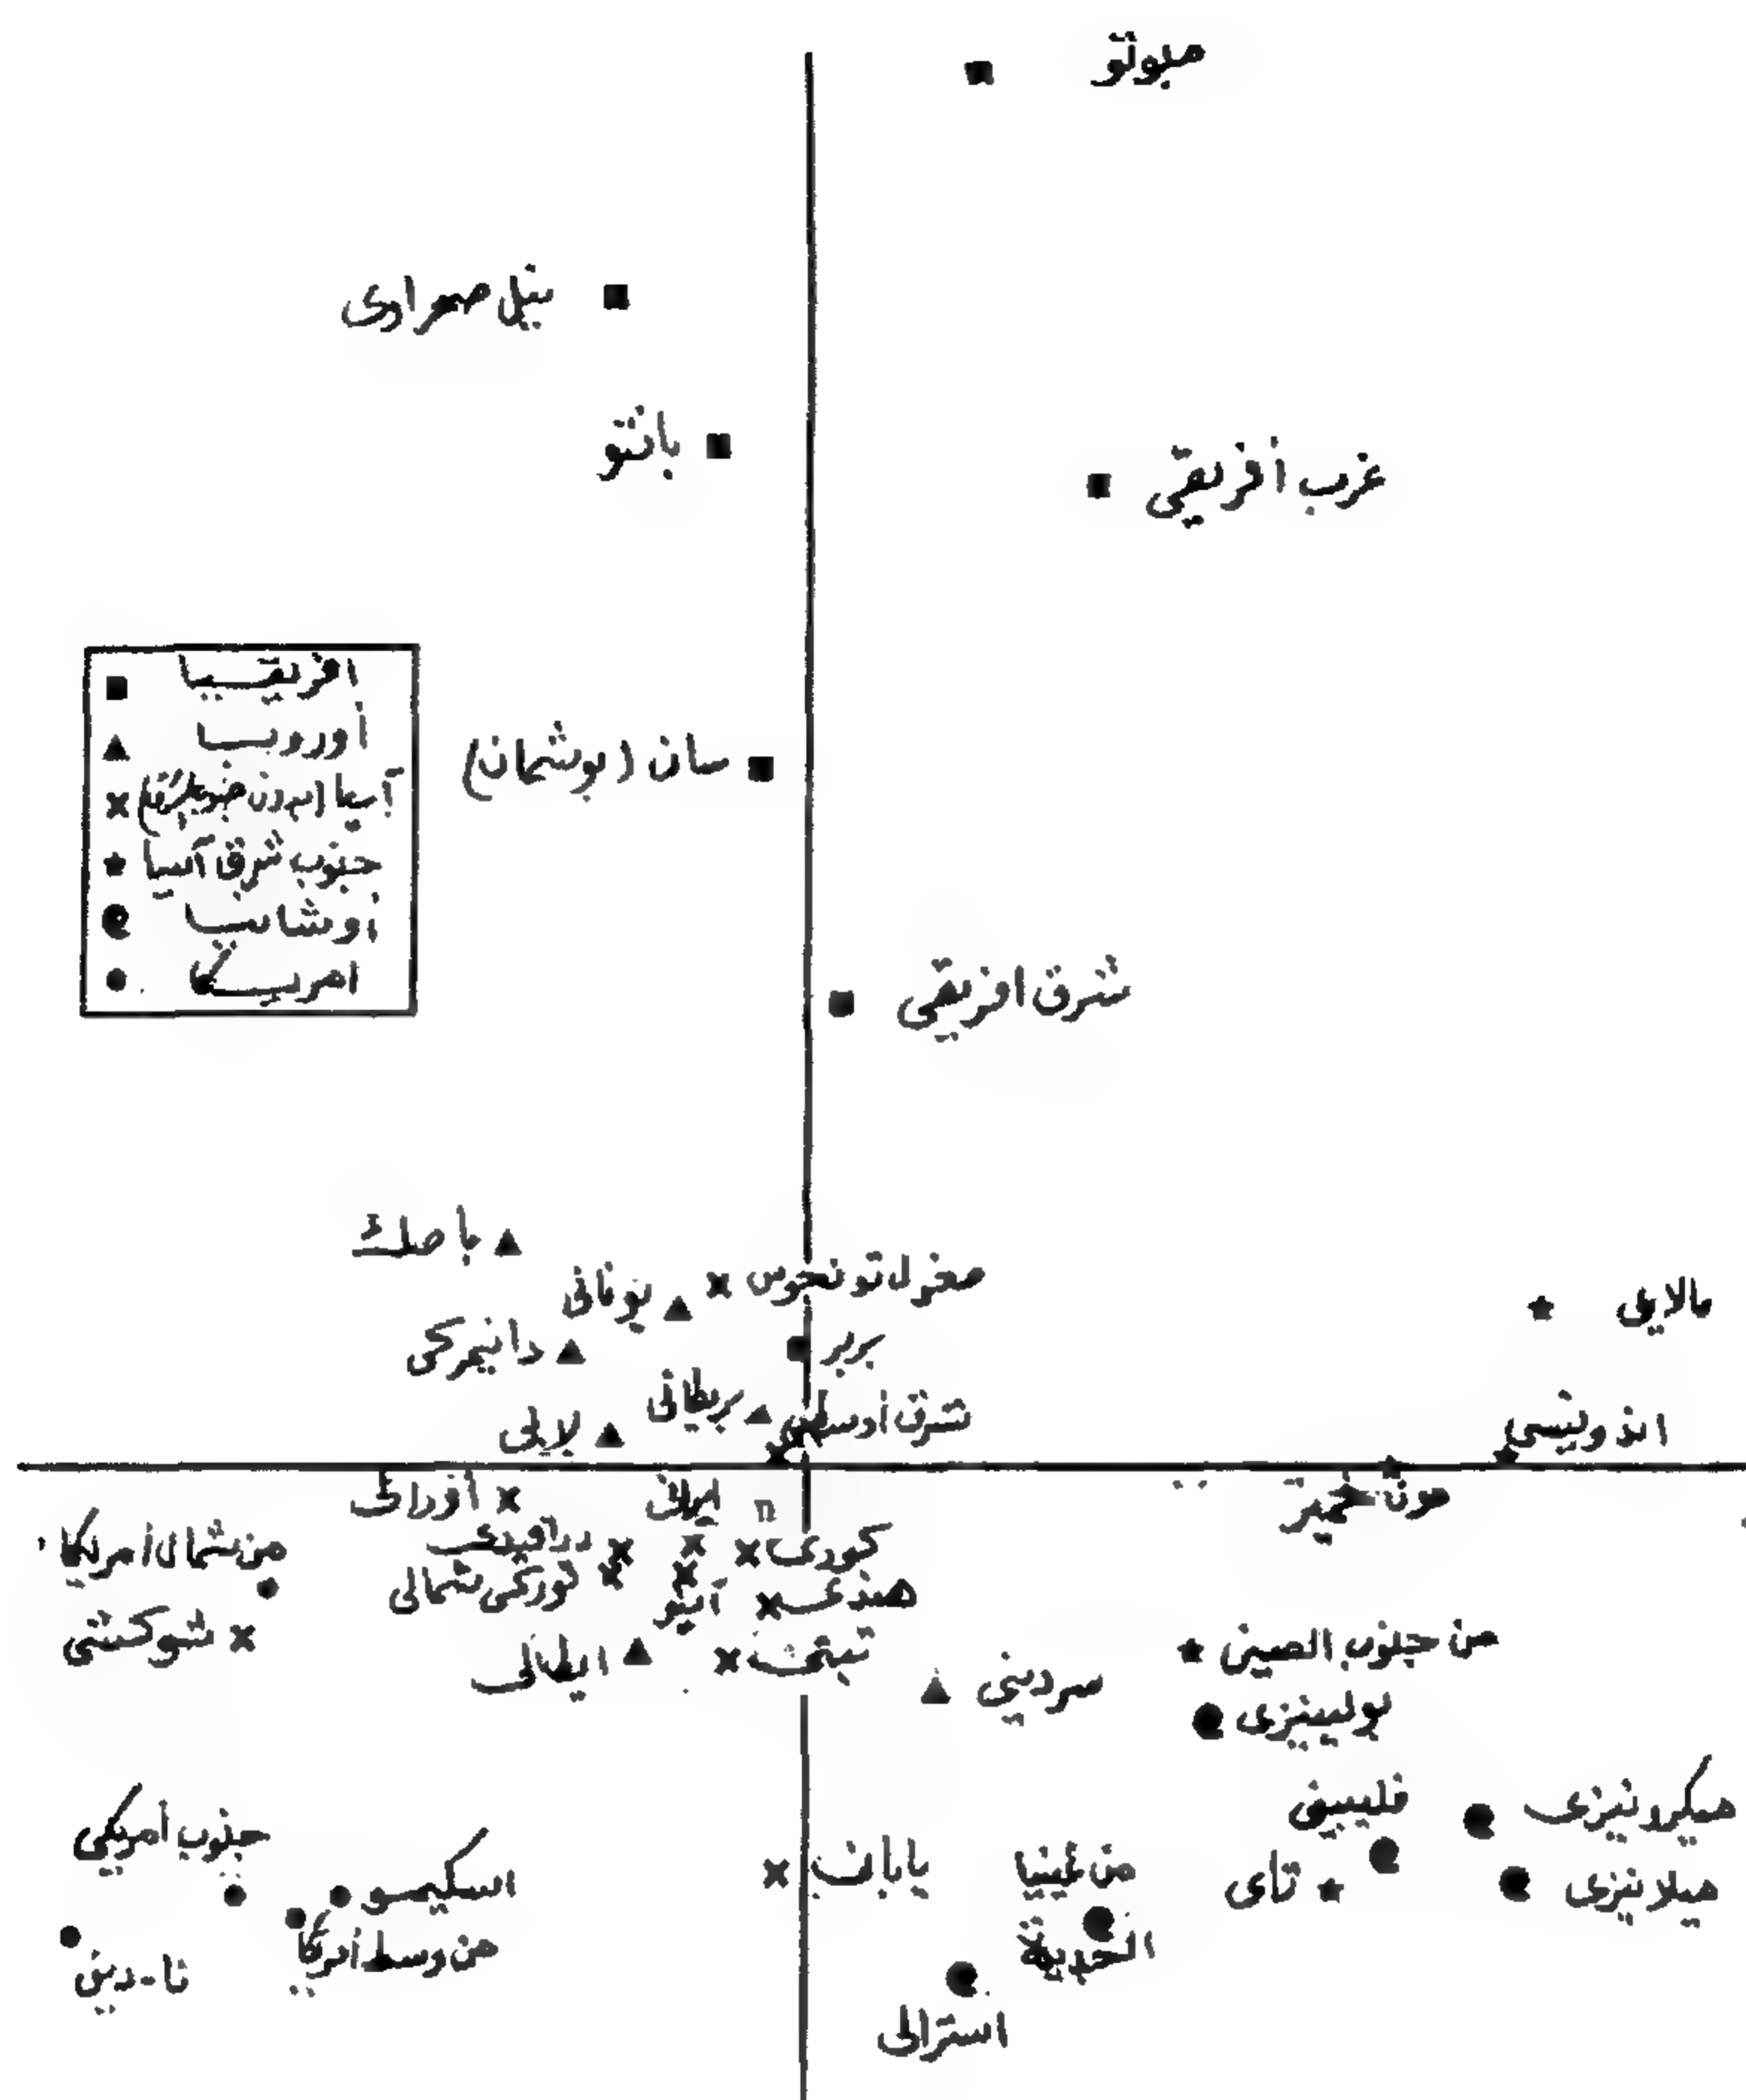 مبوتو
نيل صحراوى
بانتو
غرب أفريقى
أفريقيا
أوروبا
آسيا (بدون جنوب شرق)
جنوب شرق آسيا
أوشانيا
امريكا
سان (بوشمان)
شرق افريقى
باسك
مغول تونجوس
يونانى
مالايى
دانيمركى
بربر
بريطانى
شرق أوسطى
لابى
اندونيسى
أورالى
ايرانى
n
مون خمير
من شمال أمريكا
درافيدى
كورى
توركى شمالى
آينو
هندى
شوكتشى
ايطالى
تبتى
سردينى
من جنوب الصين
بولينيزى
فلبينى
ميكرونيزى
جنوب أمريكى
اسكيمو
يابان
من غينيا
الجديدة
تاى
ميلانيزى
من وسط أمريكا
نا-دينى
استرالى